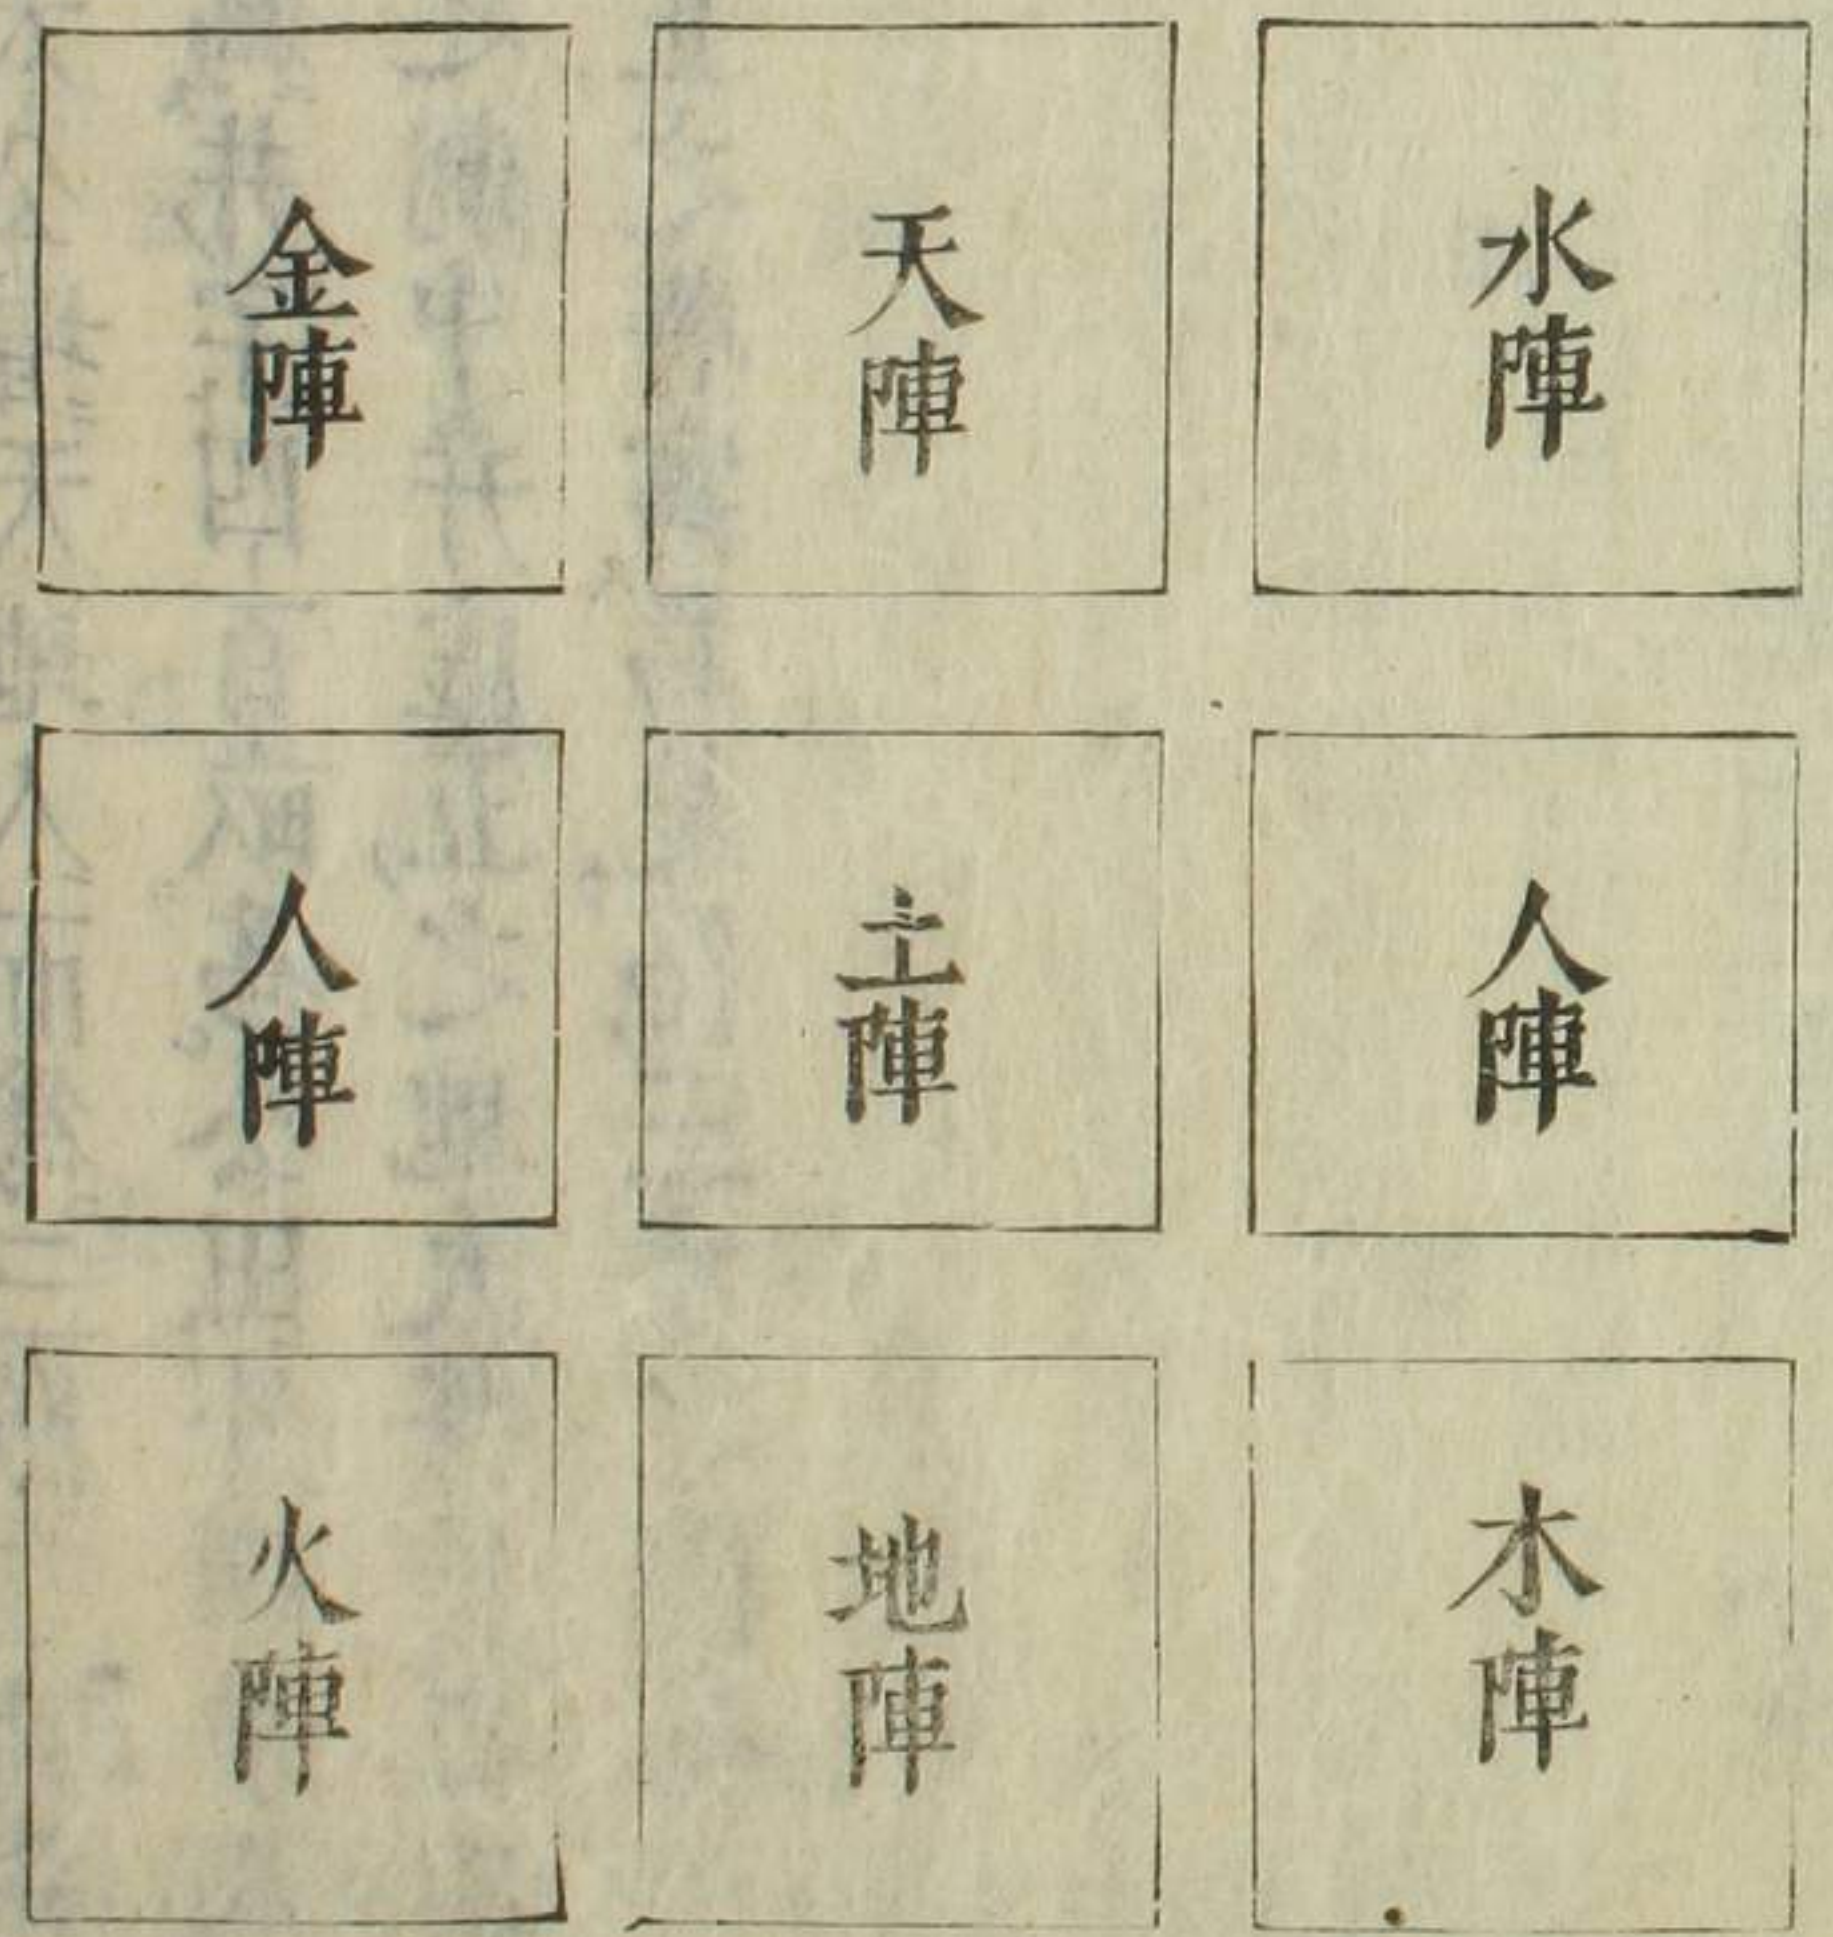 水陣
人陣
木陣
天陣
土陣
地陣
金陣
人陣
火陣